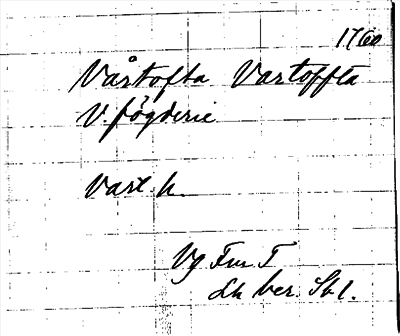 1760
Vårtofta Vartoffta
V. fögderie
Vart. h.
Vg Fur T
Lh ber. Sk 1.